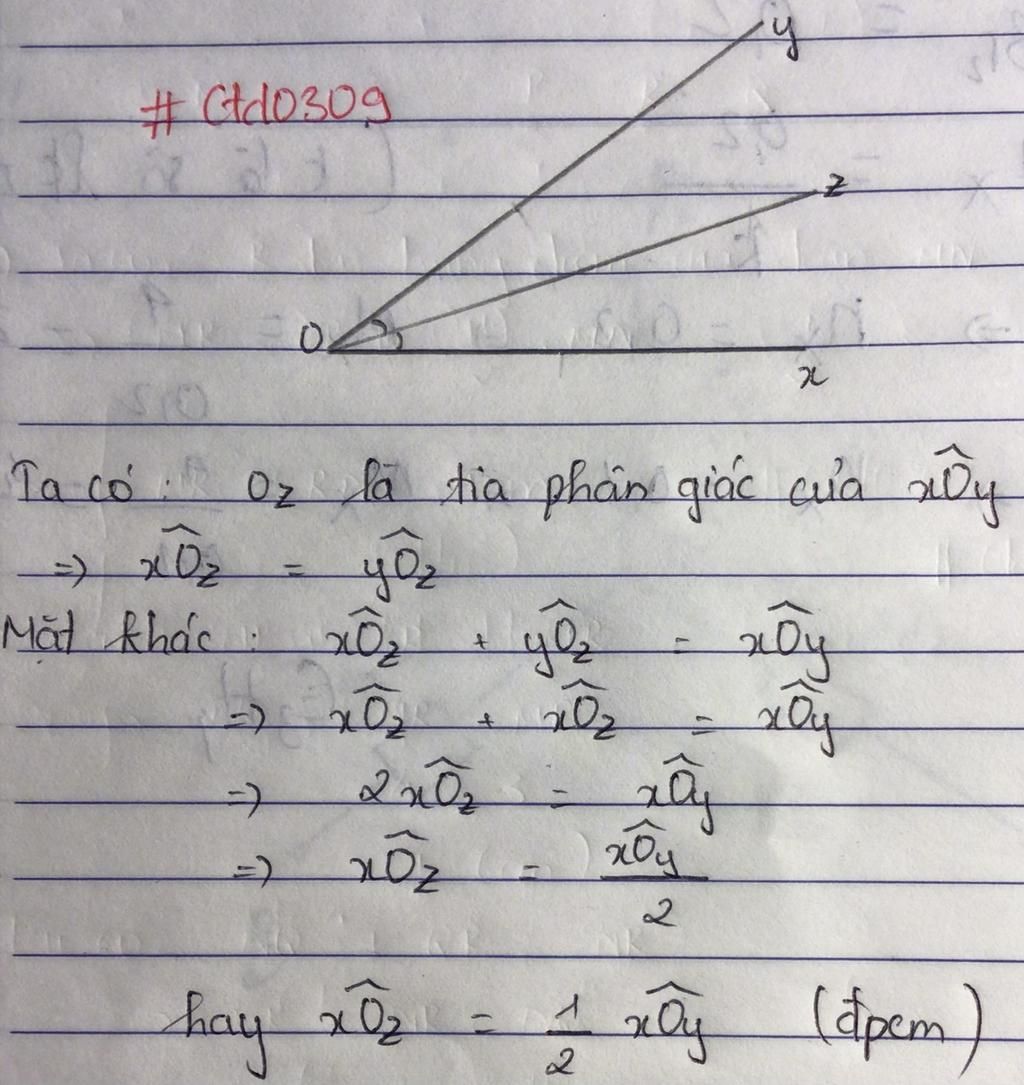 y
# Ctd0309
z
O
x
Ta có : Oz là tia phân giác của xÔy
=> xÔz = yÔz
Mặt khác : xÔz + yÔz = xÔy
=> xÔz + xÔz = xÔy
=> 2xÔz = xÔy
=> xÔz = xÔy / 2
hay xÔz = 1/2 xÔy (đpcm)